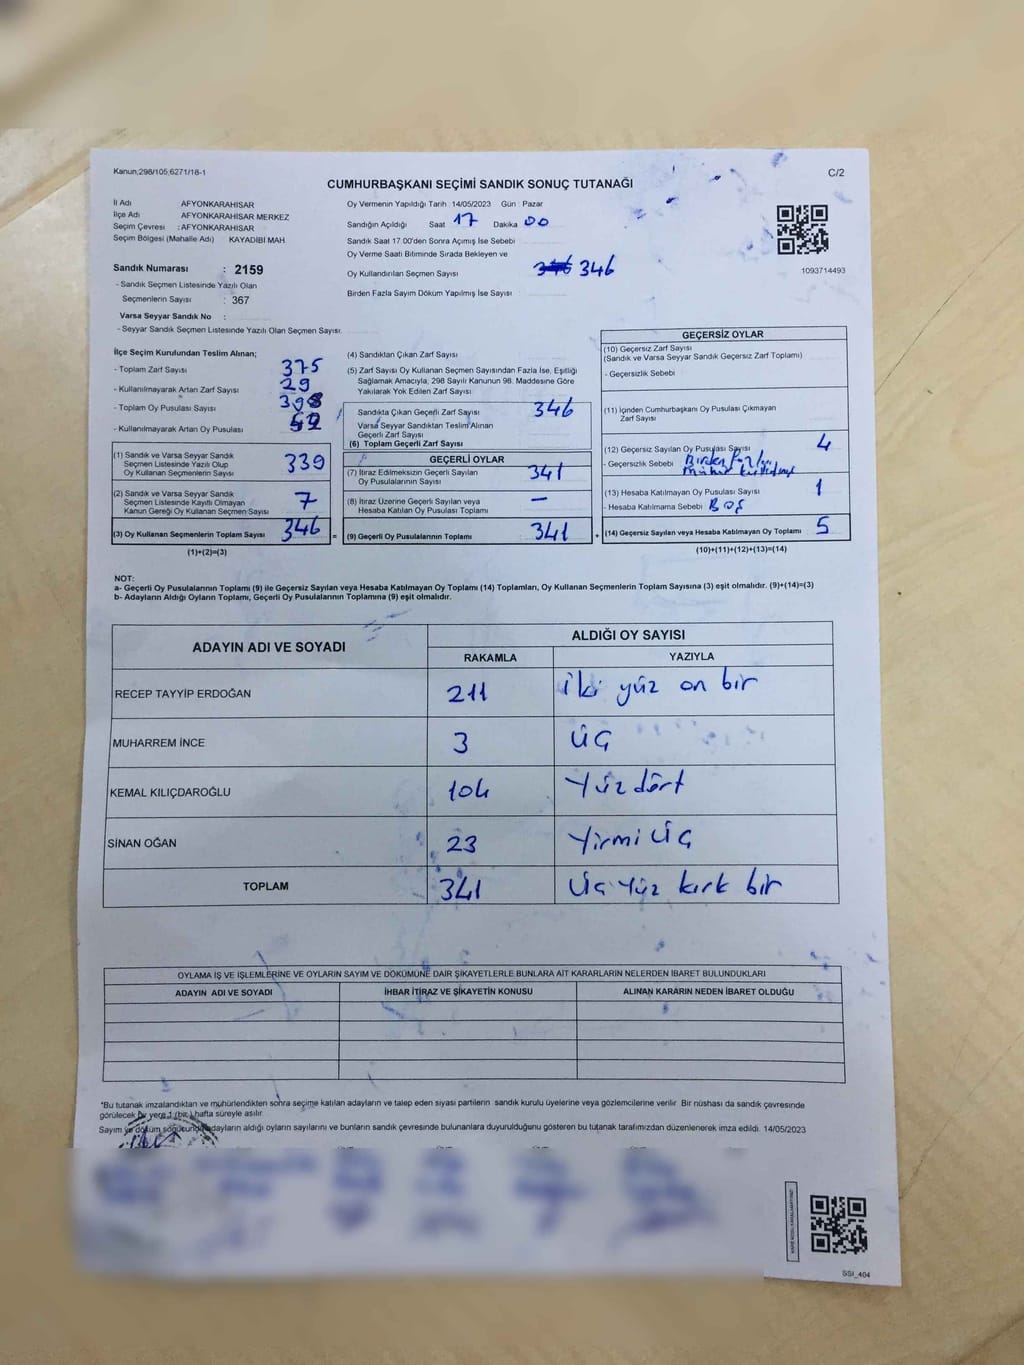 Kanun,298/105;6271/18-1
C/2
CUMHURBAŞKANI SEÇİMİ SANDIK SONUÇ TUTANAĞI
İl Adı AFYONKARAHİSAR
İlçe Adı AFYONKARAHİSAR MERKEZ
Seçim Çevresi : AFYONKARAHİSAR
Seçim Bölgesi (Mahalle Adı) KAYADİBİ MAH
Sandık Numarası : 2159
- Sandık Seçmen Listesinde Yazılı Olan
Seçmenlerin Sayısı : 367
Varsa Seyyar Sandık No :
- Seyyar Sandık Seçmen Listesinde Yazılı Olan Seçmen Sayısı:
Oy Vermenin Yapıldığı Tarih :14/05/2023 Gün : Pazar
Sandığın Açıldığı Saat 17 Dakika 00
Sandık Saat 17.00'den Sonra Açımış İse Sebebi
Oy Verme Saati Bitiminde Sırada Bekleyen ve
Oy Kullandırılan Seçmen Sayısı 346
Birden Fazla Sayım Döküm Yapılmış İse Sayısı
1093714493
İlçe Seçim Kurulundan Teslim Alınan;
- Toplam Zarf Sayısı 375
- Kullanılmayarak Artan Zarf Sayısı 29
- Toplam Oy Pusulası Sayısı
- Kullanılmayarak Artan Oy Pusulası
(1) Sandık ve Varsa Seyyar Sandık
Seçmen Listesinde Yazılı Olup
Oy Kullanan Seçmenlerin Sayısı 339
(2) Sandık ve Varsa Seyyar Sandık
Seçmen Listesinde Kayıtlı Olmayan
Kanun Gereği Oy Kullanan Seçmen Sayısı 7
(3) Oy Kullanan Seçmenlerin Toplam Sayısı 346 =
(1)+(2)=(3)
(4) Sandıktan Çıkan Zarf Sayısı
(5) Zarf Sayısı Oy Kullanan Seçmen Sayısından Fazla İse, Eşitliği
Sağlamak Amacıyla, 298 Sayılı Kanunun 98. Maddesine Göre
Yakılarak Yok Edilen Zarf Sayısı
Sandıkta Çıkan Geçerli Zarf Sayısı 346
Varsa Seyyar Sandıktan Teslim Alınan
Geçerli Zarf Sayısı
(6) Toplam Geçerli Zarf Sayısı
GEÇERLİ OYLAR
(7) İtiraz Edilmeksizin Geçerli Sayılan
Oy Pusulalarının Sayısı 341
(8) İtiraz Üzerine Geçerli Sayılan veya
Hesaba Katılan Oy Pusulası Toplamı —
(9) Geçerli Oy Pusulalarının Toplamı 341 +
GEÇERSİZ OYLAR
(10) Geçersiz Zarf Sayısı
(Sandık ve Varsa Seyyar Sandık Geçersiz Zarf Toplamı)
- Geçersizlik Sebebi
(11) İçinden Cumhurbaşkanı Oy Pusulası Çıkmayan
Zarf Sayısı
(12) Geçersiz Sayılan Oy Pusulası Sayısı 4
- Geçersizlik Sebebi Birden Fazla
(13) Hesaba Katılmayan Oy Pusulası Sayısı 1
- Hesaba Katılmama Sebebi BOŞ
(14) Geçersiz Sayılan veya Hesaba Katılmayan Oy Toplamı 5
(10)+(11)+(12)+(13)=(14)
NOT:
a- Geçerli Oy Pusulalarının Toplamı (9) ile Geçersiz Sayılan veya Hesaba Katılmayan Oy Toplamı (14) Toplamları, Oy Kullanan Seçmenlerin Toplam Sayısına (3) eşit olmalıdır. (9)+(14)=(3)
b- Adayların Aldığı Oyların Toplamı, Geçerli Oy Pusulalarının Toplamına (9) eşit olmalıdır.
ADAYIN ADI VE SOYADI ALDIĞI OY SAYISI
RAKAMLA YAZIYLA
RECEP TAYYİP ERDOĞAN 211 iki yüz on bir
MUHARREM İNCE 3 ÜÇ
KEMAL KILIÇDAROĞLU 104 Yüz dört
SİNAN OĞAN 23 Yirmi Üç
TOPLAM 341 Üç Yüz kırk bir
OYLAMA İŞ VE İŞLEMLERİNE VE OYLARIN SAYIM VE DÖKÜMÜNE DAİR ŞİKAYETLERLE BUNLARA AİT KARARLARIN NELERDEN İBARET BULUNDUKLARI
ADAYIN ADI VE SOYADI İHBAR İTİRAZ VE ŞİKAYETİN KONUSU ALINAN KARARIN NEDEN İBARET OLDUĞU
*Bu tutanak imzalandıktan ve mühürlendikten sonra seçime katılan adayların ve talep eden siyasi partilerin sandık kurulu üyelerine veya gözlemcilerine verilir. Bir nüshası da sandık çevresinde
görülecek bir yere 1 (bir) hafta süreyle asılır.
Sayım ve döküm sonucunda adayların aldığı oyların sayılarını ve bunların sandık çevresinde bulunanlara duyurulduğunu gösteren bu tutanak tarafımızdan düzenlenerek imza edildi. 14/05/2023
SSI_404